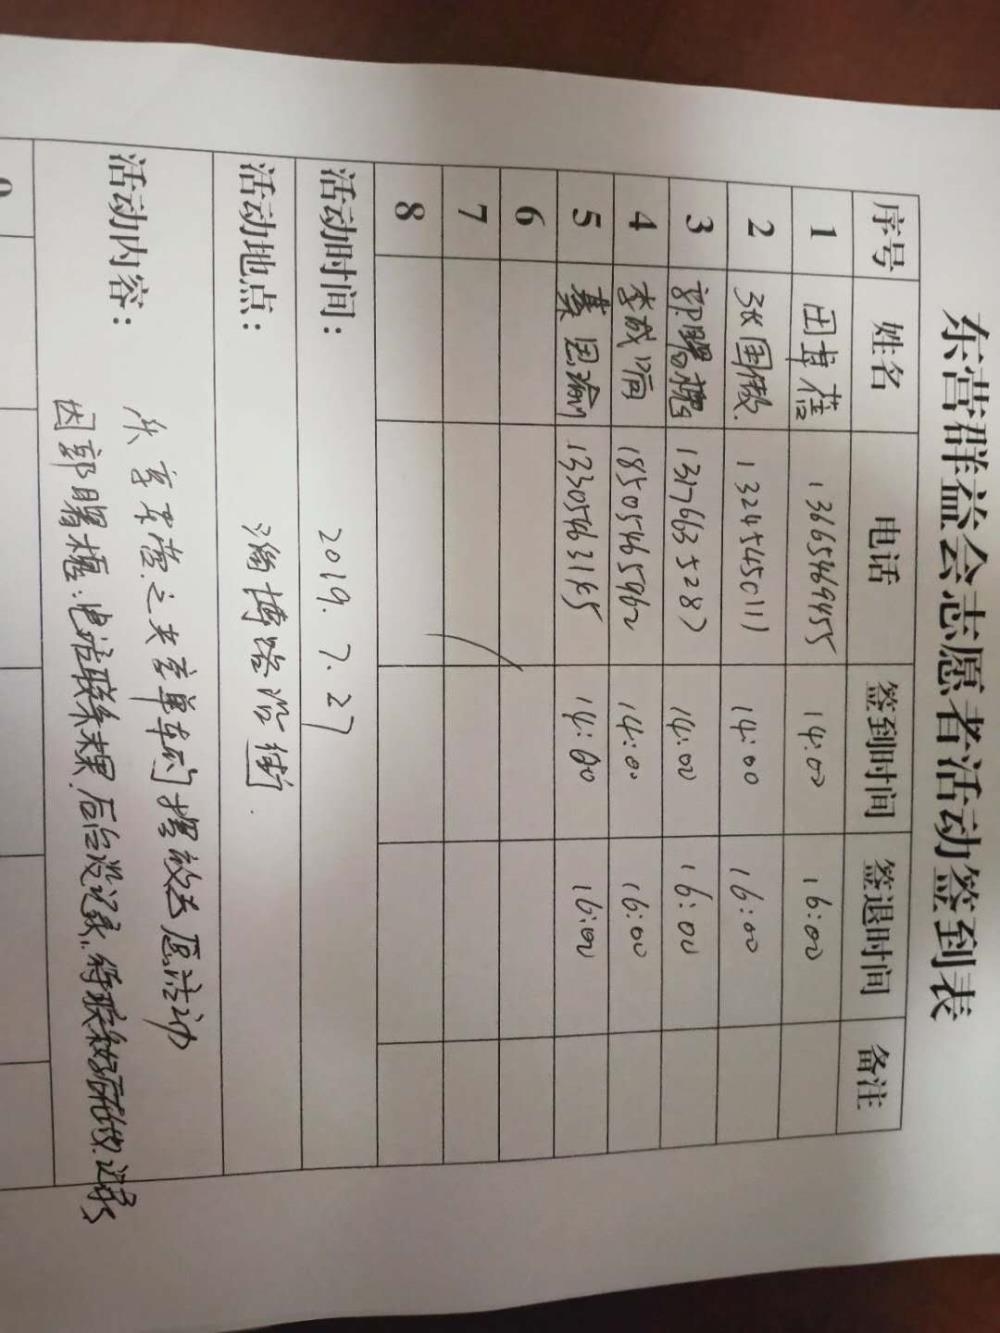 东营群益会志愿者活动签到表
序号 姓名 电话 签到时间 签退时间 备注
1 田卓蓓 13665469455 14:00 16:00
2 张国傲 13245450111 14:00 16:00
3 郭曙 13176635287 14:00 16:00
4 李成 18505465962 14:00 16:00
5 綦思瑜 13305463165 14:00 16:00
6
7
8
活动时间: 2019.7.27
活动地点: 淄博路沿街.
活动内容: 共享东营之共享单车的摆放志愿活动
因郭曙 电话联系未果.后台没记录,待联系好后